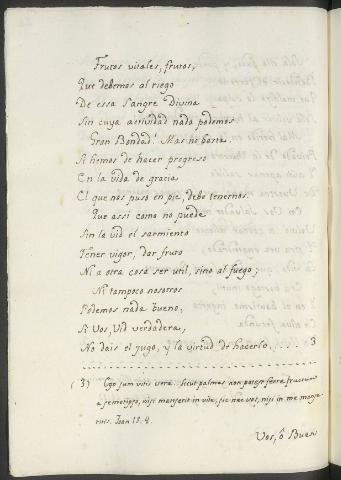 Frutos vitales, frutos,
Que debemos al riego
De essa Sangre Divina
Sin cuya actividad nada podemos
Gron Bondad! Mas no basta.
Si hemos de hacer progreso
En la vida de gracia
El que nos puso en pie, debe tenernos.
Que assi como no puede
Sin la vid el sarmiento
Tener vigor, dar fruto
Ni a otra cosa ser util, sino al fuego;
Ni tampoco nosotros
Podemos nada bueno,
Si Vos, Vid verdadera,
No dais el jugo, y la virtud de hacerlo. . . . . 3
(3) Ego sum vitis vera. Sicut palmes non potest ferre fructum
a semetipso, nisi manserit in vite, sic nec vos, nisi in me manse
ritis. Joan 15. 4.
Vos, ô Buen